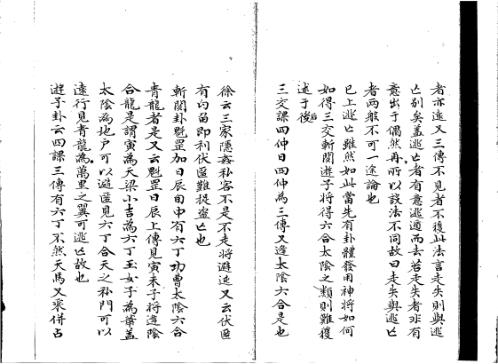 者亦遠又三傳不見者不復此法言走失則與逃
亡別矣蓋逃亡者有意逃遁而去若走失者非有
意出于偶然耳所以設法不同故曰走失與逃亡
者兩般不可一途論也
已上逃亡雖然如此當先有卦體發用神將如何
如得三交斬關遊子將得六合太陰之類則難復
述于後
三交課四仲日四仲為三傳又逢太陰六合是也
徐云三家隱姦私客不是不走將避迯又云伏匿
有向留即利伏匿難捉盜亡也
斬關卦魁罡加日辰用中有六丁功曹太陰六合
青龍者是又云魁罡日辰上傳見寅未子將逢陰
合龍是謂寅為天梁小吉為六丁玉女子為華蓋
太陰為地戶可以避匿見六丁合天之私門可以
遠行見青龍為萬里之翼可逃亡故也
遊子卦云四課三傳有六丁不然天馬又乘併占